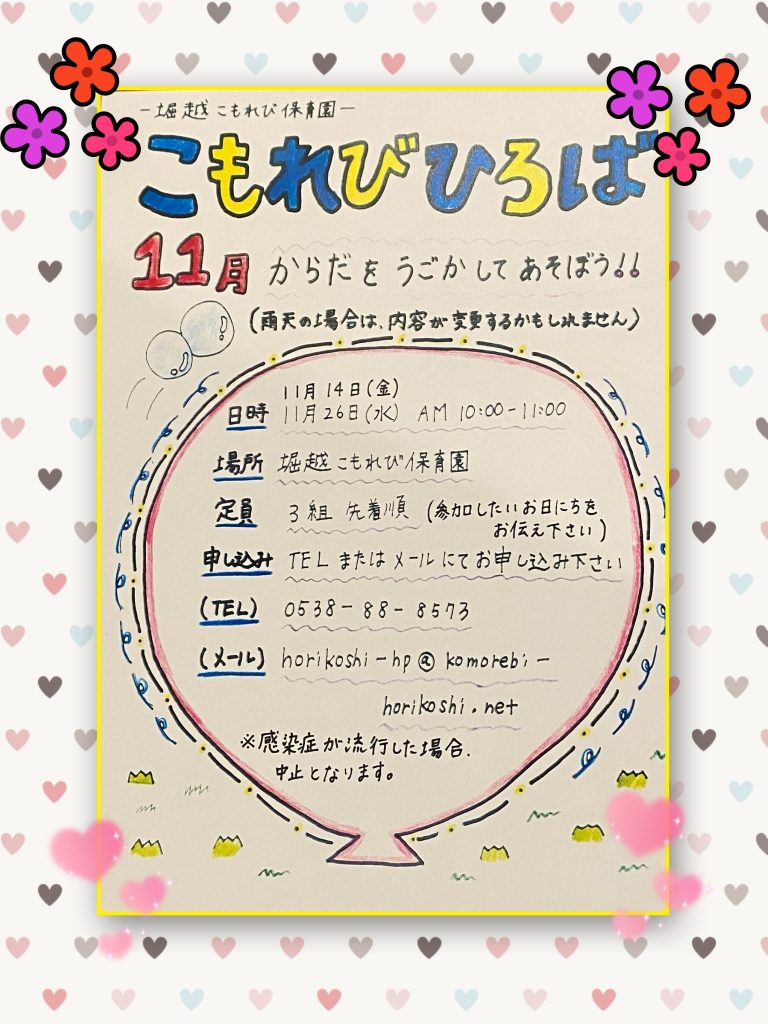 －堀越こもれび保育園－
こもれびひろば
11月 からだを うごかして あそぼう!!
(雨天の場合は、内容が変更するかもしれません)
11月14日(金)
日時 11月26日(水) AM 10:00-11:00
場所 堀越こもれび保育園
定員 3組 先着順 (参加したいお日にちを
お伝え下さい)
申し込み TELまたはメールにてお申し込み下さい
(TEL) 0538-88-8573
(メール) horikoshi-hp@komorebi-
horikoshi.net
※感染症が流行した場合、
中止となります。